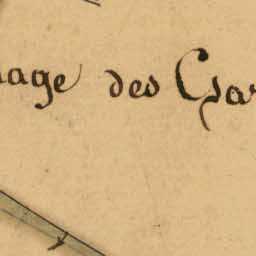 nage des Gar